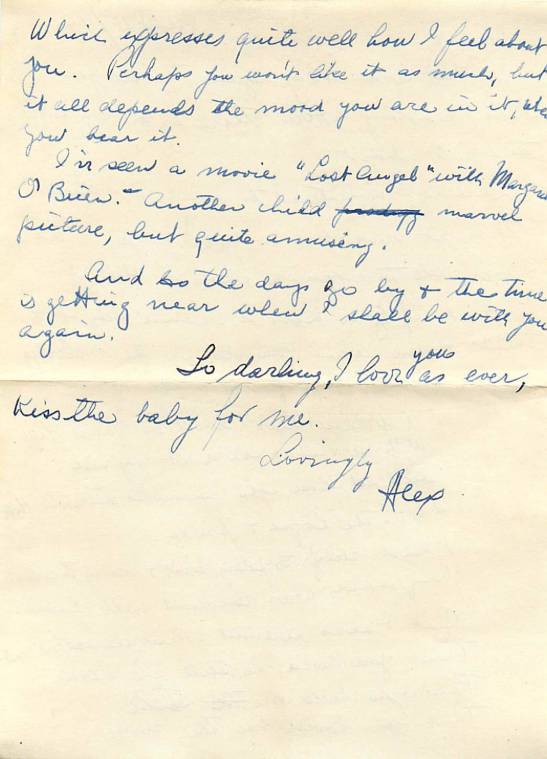 Which expresses quite well how I feel about
you. Perhaps you won't like it as much, but
it all depends the mood you are in it, when
you hear it.
I've seen a movie "Lost Angel" with Margaret
O'Brien. Another child marvel
picture, but quite amusing.
And so the days go by & the time
is getting near when I shall be with you
again.
So darling, I love you as ever,
Kiss the baby for me.
Lovingly
Alex